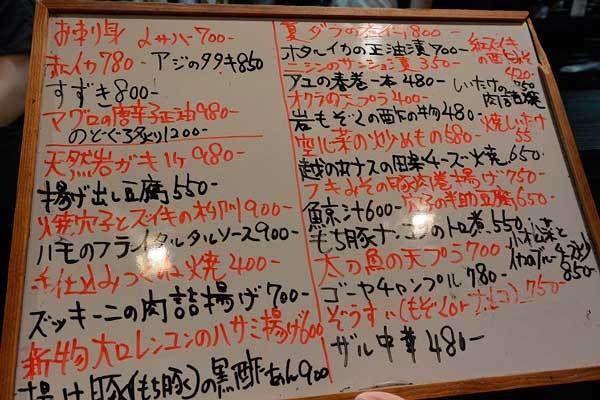 お刺り身
〆サバー700-
ホタルイカ780- アジのタタキ850
すずき800-
マグロの唐辛子正油980-
のどぐろ炙り1200-
天然岩ガキ1ケ980-
揚げ出し豆腐550-
焼穴子とズイキの柳川900-
ハモのフライタルタルソース900-
手仕込みつくね焼400-
ズッキーニの肉詰揚げ700-
新物大口レンコンのハサミ揚げ600
揚げ豚(もち豚)の黒酢あん900
800-
ホタルイカの正油漬700-
ニシンのサンショ漬350-
アユの春巻一本480-
オクラの天プラ400-
岩もずくの酢の物480-
空心菜の炒めもの580-
越の丸ナスの田楽チーズ焼650-
フキみその豚肉巻揚げ750-
鯨汁600-
穴子の半助豆腐650-
もち豚ナンコツのトロ煮550
太刀魚の天プラ700-
ゴーヤチャンプル780-
ぞうすい(もずくorナメコ)750-
ザル中華480-
紅ズイキ
の酢
420-
しいたけの
肉詰
焼しいたけ
55
小松菜と
イカの
850-